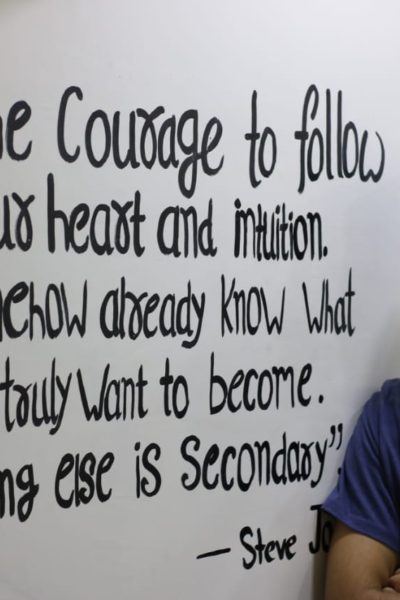 he Courage to follow
ur heart and intuition.
ehow already know what
truly want to become.
ng else is Secondary”.
— Steve Jo